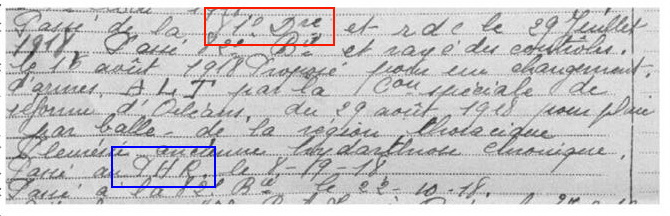 Passé de la 71º Dre et rdc le 29 Juillet
1918. Passé 82e Bie et rayé des contrôles.
le 18 août 1918 Proposé pour un changement
d'armes A L T par la Con spéciale de
réforme d'Orléans, du 29 août 1918 pour plaie
par balle - de la région thoracique
Pleurésie ancienne hydarthrose chronique.
Passé au P.H.R. le 8-19-18.
Passé à la 82e Bie le 22-10-18.